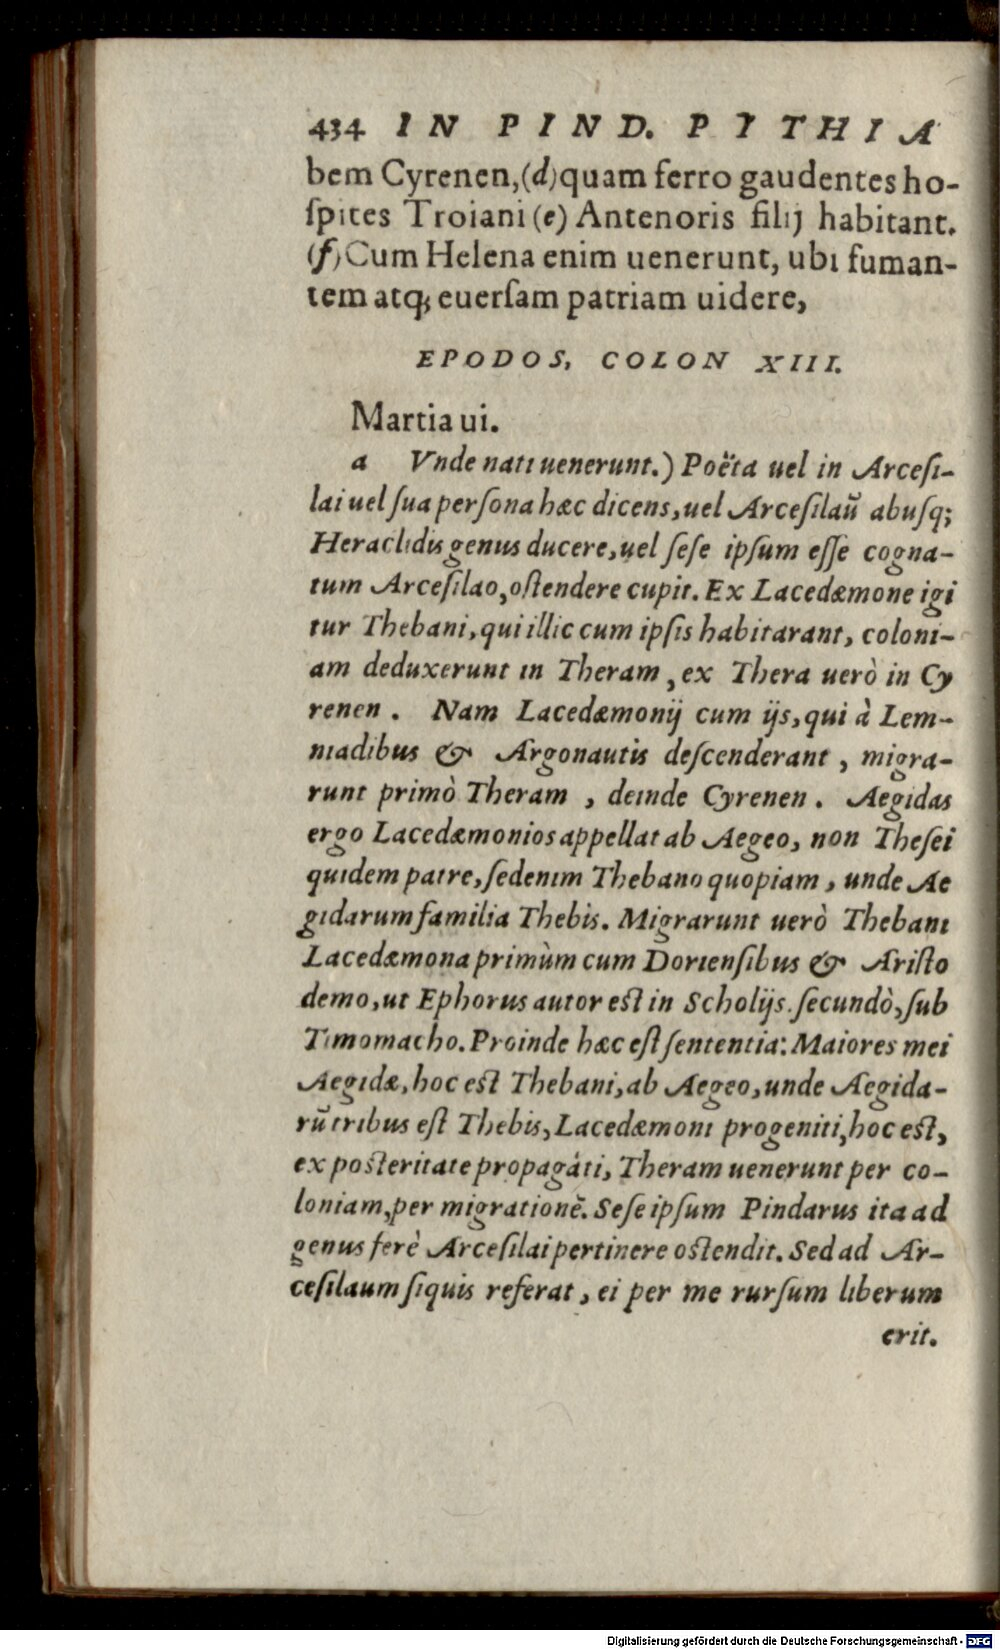 434 IN PIND. PYTHIA
bem Cyrenen,(d)quam ferro gaudentes ho-
ſpites Troiani(e) Antenoris filij habitant.
(f)Cum Helena enim uenerunt, ubi fuman-
tem atq; euerſam patriam uidere,
EPODOS, COLON XIII.
Martia ui.
a Vnde nati uenerunt.) Poëta uel in Arceſi-
lai uel ſua perſona hæc dicens, uel Arceſilaũ abuſq;
Heraclidis genus ducere, uel ſeſe ipſum eſſe cogna-
tum Arceſilao, oſtendere cupit. Ex Lacedæmone igi
tur Thebani, qui illic cum ipſis habitarant, coloni-
am deduxerunt in Theram, ex Thera uerò in Cy
renen. Nam Lacedæmonij cum ijs, qui à Lem-
niadibus & Argonautis deſcenderant, migra-
runt primò Theram, deinde Cyrenen. Aegidas
ergo Lacedæmonios appellat ab Aegeo, non Theſei
quidem patre, ſedenim Thebano quopiam, unde Ae
gidarum familia Thebis. Migrarunt uerò Thebani
Lacedæmona primùm cum Dorienſibus & Ariſto
demo, ut Ephorus autor eſt in Scholijs. ſecundò, ſub
Timomacho. Proinde hæc eſt ſententia: Maiores mei
Aegidæ, hoc eſt Thebani, ab Aegeo, unde Aegida-
rũ tribus eſt Thebis, Lacedæmoni progeniti, hoc eſt,
ex poſteritate propagáti, Theram uenerunt per co-
loniam, per migrationẽ. Seſe ipſum Pindarus ita ad
genus ferè Arceſilai pertinere oſtendit. Sed ad Ar-
ceſilaum ſiquis referat, ei per me rurſum liberum
erit.
Digitalisierung gefördert durch die Deutsche Forschungsgemeinschaft - DFG